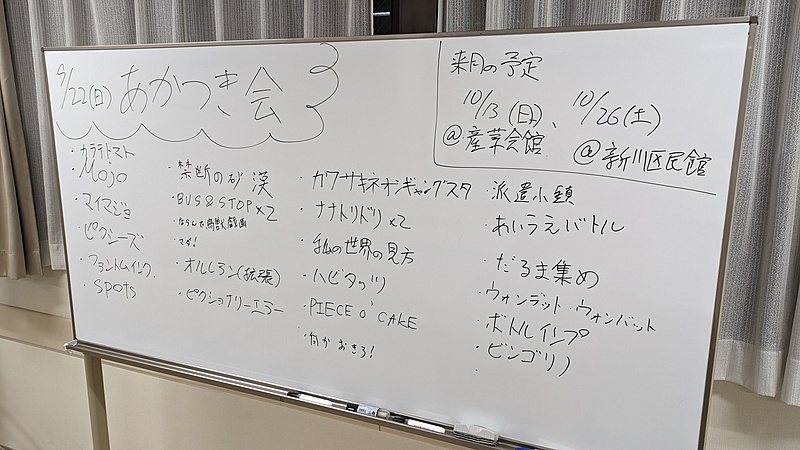 9/22(日) あかつき会
来月の予定
10/13(日)、10/26(土)
@産業会館 @新川区民館
・カラテトマト
・MOJO
・マイマジョ
・ピクシーズ
・ファントムインク.
・SPOTS
・禁断の砂漠
・BUS&STOP×2
・ならした鳥獣戯画
・マダ!
・オルレアン(拡張)
・ピクショナリーエラー
・カワサキネオンギャングスタ
・ナナトリドリ×2
・私の世界の見方
・ハビタッツ
・PIECE O' CAKE
・何かおきろ!
・派遣小鎮
・あいうえバトル
・だるま集め
・ウォンテッド・ウォンバット
・ボトルインプ
・ビンゴリノ